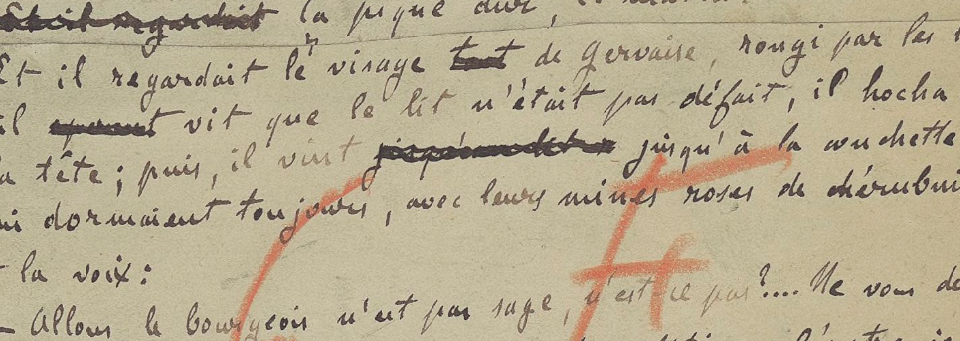 la pique dur,
Et il regardait le visage de Gervaise, rougi par les
il vit que le lit n'était pas défait, il hocha
la tête ; puis, il vint jusqu'à la couchette
qui dormaient toujours, avec leurs mines roses de chérubins
la voix :
— Allons le bourgeois n'est pas sage, n'est-ce pas ?.... Ne vous dé